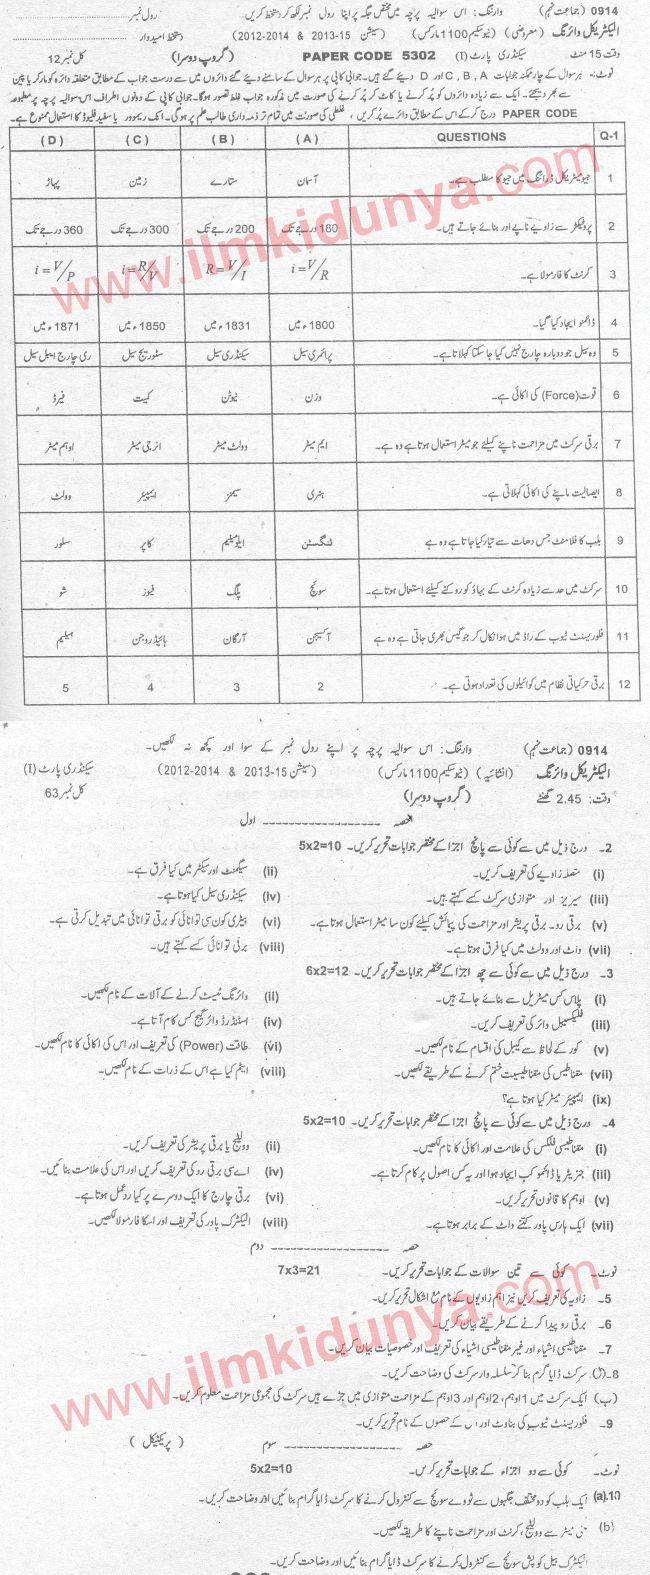 0914 (جماعت نہم) وارننگ: اس سوالیہ پرچہ میں مختص جگہ پر اپنا رول نمبر لکھ کر دستخط کریں۔ رول نمبر
الیکٹریکل وائرنگ (معروضی) (نیوسکیم 1100 مارکس) (سیشن 15-2013 & 2014-2012) دستخط امیدوار
وقت 15 منٹ سیکنڈری پارٹ (I) PAPER CODE 5302 (گروپ دوسرا) کل نمبر 12
نوٹ۔ ہر سوال کے چار ممکنہ جوابات A ,B ,C اور D دیئے گئے ہیں۔ جوابی کاپی پر ہر سوال کے سامنے دیئے گئے دائروں میں سے درست جواب کے مطابق متعلقہ دائرہ کو مارکر یا پین
سے بھر دیجئے۔ ایک سے زیادہ دائروں کو پُر کرنے یا کاٹ کر پُر کرنے کی صورت میں مذکورہ جواب غلط تصور ہوگا۔ جوابی کاپی کے دونوں اطراف اس سوالیہ پرچہ پر مطبوعہ
PAPER CODE درج کرکے اس کے مطابق دائرے پُر کریں، غلطی کی صورت میں تمام تر ذمہ داری طالب علم پر ہوگی۔ انک ریموور یا سفید فلیوڈ کا استعمال ممنوع ہے۔
Q-1 QUESTIONS (A) (B) (C) (D)
1 جیومیٹریکل ڈرائنگ میں جیو کا مطلب ہے۔ آسمان ستارے زمین پہاڑ
2 پروٹیکٹر سے زاویئے ناپے اور بنائے جاتے ہیں۔ 180 درجے تک 200 درجے تک 300 درجے تک 360 درجے تک
3 کرنٹ کا فارمولا ہے۔ i = V/R R = V/I i = R/V i = V/P
4 ڈائنمو ایجاد کیا گیا۔ 1800ء میں 1831ء میں 1850ء میں 1871ء میں
5 وہ سیل جو دوبارہ چارج نہیں کیا جا سکتا کہلاتا ہے۔ پرائمری سیل سیکنڈری سیل سٹوریج سیل ری چارج ایبل سیل
6 قوت (Force) کی اکائی ہے۔ وزن نیوٹن کمیت فیرڈ
7 برقی سرکٹ میں مزاحمت ناپنے کیلئے جو میٹر استعمال ہوتا ہے وہ ہے۔ ایم میٹر وولٹ میٹر انرجی میٹر اوہم میٹر
8 ایصالیت ماپنے کی اکائی کہلاتی ہے۔ ہنری سیمنز ایمپیئر وولٹ
9 بلب کا فلامنٹ جس دھات سے تیار کیا جاتا ہے وہ ہے ٹنگسٹن ایلومینیم کاپر سلور
10 سرکٹ میں حد سے زیادہ کرنٹ کے بہاؤ کو روکنے کیلئے استعمال ہوتا ہے۔ سوئچ پلگ فیوز شو
11 فلوریسنٹ ٹیوب کے راڈ میں ہوا نکال کر جو گیس بھری جاتی ہے وہ ہے آکسیجن آرگان ہائیڈروجن ہیلیم
12 برقی حرکیاتی نظام میں کوائیلوں کی تعداد ہوتی ہے۔ 2 3 4 5
www.ilmkidunya.com
0914 (جماعت نہم) وارننگ: اس سوالیہ پرچہ پر اپنے رول نمبر کے سوا اور کچھ نہ لکھیں۔
الیکٹریکل وائرنگ (انشائیہ) (نیوسکیم 1100 مارکس) (سیشن 15-2013 & 2014-2012) سیکنڈری پارٹ (I)
وقت: 2.45 گھنٹے (گروپ دوسرا) کل نمبر 63
حصہ اول
2۔ درج ذیل میں سے کوئی سے پانچ اجزا کے مختصر جوابات تحریر کریں۔ 5x2=10
(i) متصلہ زاویے کی تعریف کریں۔ (ii) سیگمنٹ اور سیکٹر میں کیا فرق ہے۔
(iii) سیریز اور متوازی سرکٹ کسے کہتے ہیں۔ (iv) سیکنڈری سیل کیا ہوتا ہے۔
(v) برقی رو۔ برقی پریشر اور مزاحمت کی پیمائش کیلئے کون سا میٹر استعمال ہوتا ہے۔ (vi) بیٹری کون سی توانائی کو برقی توانائی میں تبدیل کرتی ہے۔
(vii) واٹ اور وولٹ میں کیا فرق ہوتا ہے۔ (viii) برقی توانائی کسے کہتے ہیں۔
3۔ درج ذیل میں سے کوئی سے چھ اجزا کے مختصر جوابات تحریر کریں۔ 6x2=12
(i) پلاس کس میٹریل سے بنائے جاتے ہیں۔ (ii) وائرنگ ٹیسٹ کرنے کے آلات کے نام لکھیں۔
(iii) فلیکسیبل وائر کی تعریف کریں۔ (iv) اسٹنڈرڈ وائر گیج کس کام آتا ہے۔
(v) کور کے لحاظ سے کیبل کی اقسام کے نام لکھیں۔ (vi) طاقت (Power) کی تعریف اور اس کی اکائی کا نام لکھیں۔
(vii) مقناطیس کی مقناطیسیت ختم کرنے کے طریقے لکھیں۔ (viii) ایٹم کیا ہے اس کے ذرات کے نام لکھیں۔
(ix) ایمپیئر میٹر کیا ہوتا ہے؟
4۔ درج ذیل میں سے کوئی سے پانچ اجزا کے مختصر جوابات تحریر کریں۔ 5x2=10
(i) مقناطیسی فلکس کی علامت اور اکائی کا نام لکھیں۔ (ii) وولٹیج یا برقی پریشر کی تعریف کریں۔
(iii) جنریٹر یا ڈائنمو کب ایجاد ہوا اور یہ کس اصول پر کام کرتا ہے۔ (iv) اے سی برقی رو کی تعریف کریں اور اس کی علامت بنائیں۔
(v) اوہم کا قانون تحریر کریں۔ (vi) برقی چارج کا ایک دوسرے پر کیا ردعمل ہوتا ہے۔
(vii) ایک ہارس پاور کتنے واٹ کے برابر ہوتا ہے۔ (viii) الیکٹرک پاور کی تعریف اور اسکا فارمولا لکھیں۔
حصہ دوم
نوٹ۔ کوئی سے تین سوالات کے جوابات تحریر کریں۔ 7x3=21
5۔ زاویہ کی تعریف کریں نیز اہم زاویوں کے نام مع اشکال تحریر کریں۔
6۔ برقی رو پیدا کرنے کے طریقے بیان کریں۔
7۔ مقناطیسی اشیاء اور غیر مقناطیسی اشیاء کی تعریف اور خصوصیات بیان کریں۔
8۔ سرکٹ ڈایا گرام بنا کر سلسلہ وار سرکٹ کی وضاحت کریں۔
(ب) ایک سرکٹ میں 1 اوہم، 2 اوہم اور 3 اوہم کے مزاحمت متوازی میں جڑے ہیں سرکٹ کی مجموعی مزاحمت معلوم کریں۔
9۔ فلوریسنٹ ٹیوب کی بناوٹ اور اس کے حصوں کے نام تحریر کریں۔
حصہ سوم (پریکٹیکل)
نوٹ۔ کوئی سے دو اجزاء کے جوابات تحریر کریں۔ 5x2=10
10.(a) ایک بلب کو دو مختلف جگہوں سے ٹو وے سوئچ سے کنٹرول کرنے کا سرکٹ ڈایا گرام بنائیں اور وضاحت کریں۔
(b) میٹر سے وولٹیج، کرنٹ اور مزاحمت ناپنے کا طریقہ لکھیں۔
الیکٹرک بیل کو پش سوئچ سے کنٹرول کرنے کا سرکٹ ڈایا گرام بنائیں اور وضاحت کریں۔
www.ilmkidunya.com